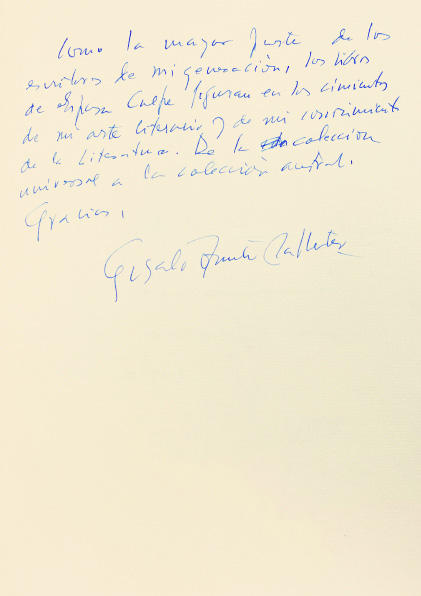 Como la mayor parte de los
escritores de mi generación, los libros
de Espasa Calpe figuran en los cimientos
de mi arte literario y de mi conocimiento
de la Literatura. De la colección
universal a la colección austral.
Gracias,
Gonzalo Torrente Ballester